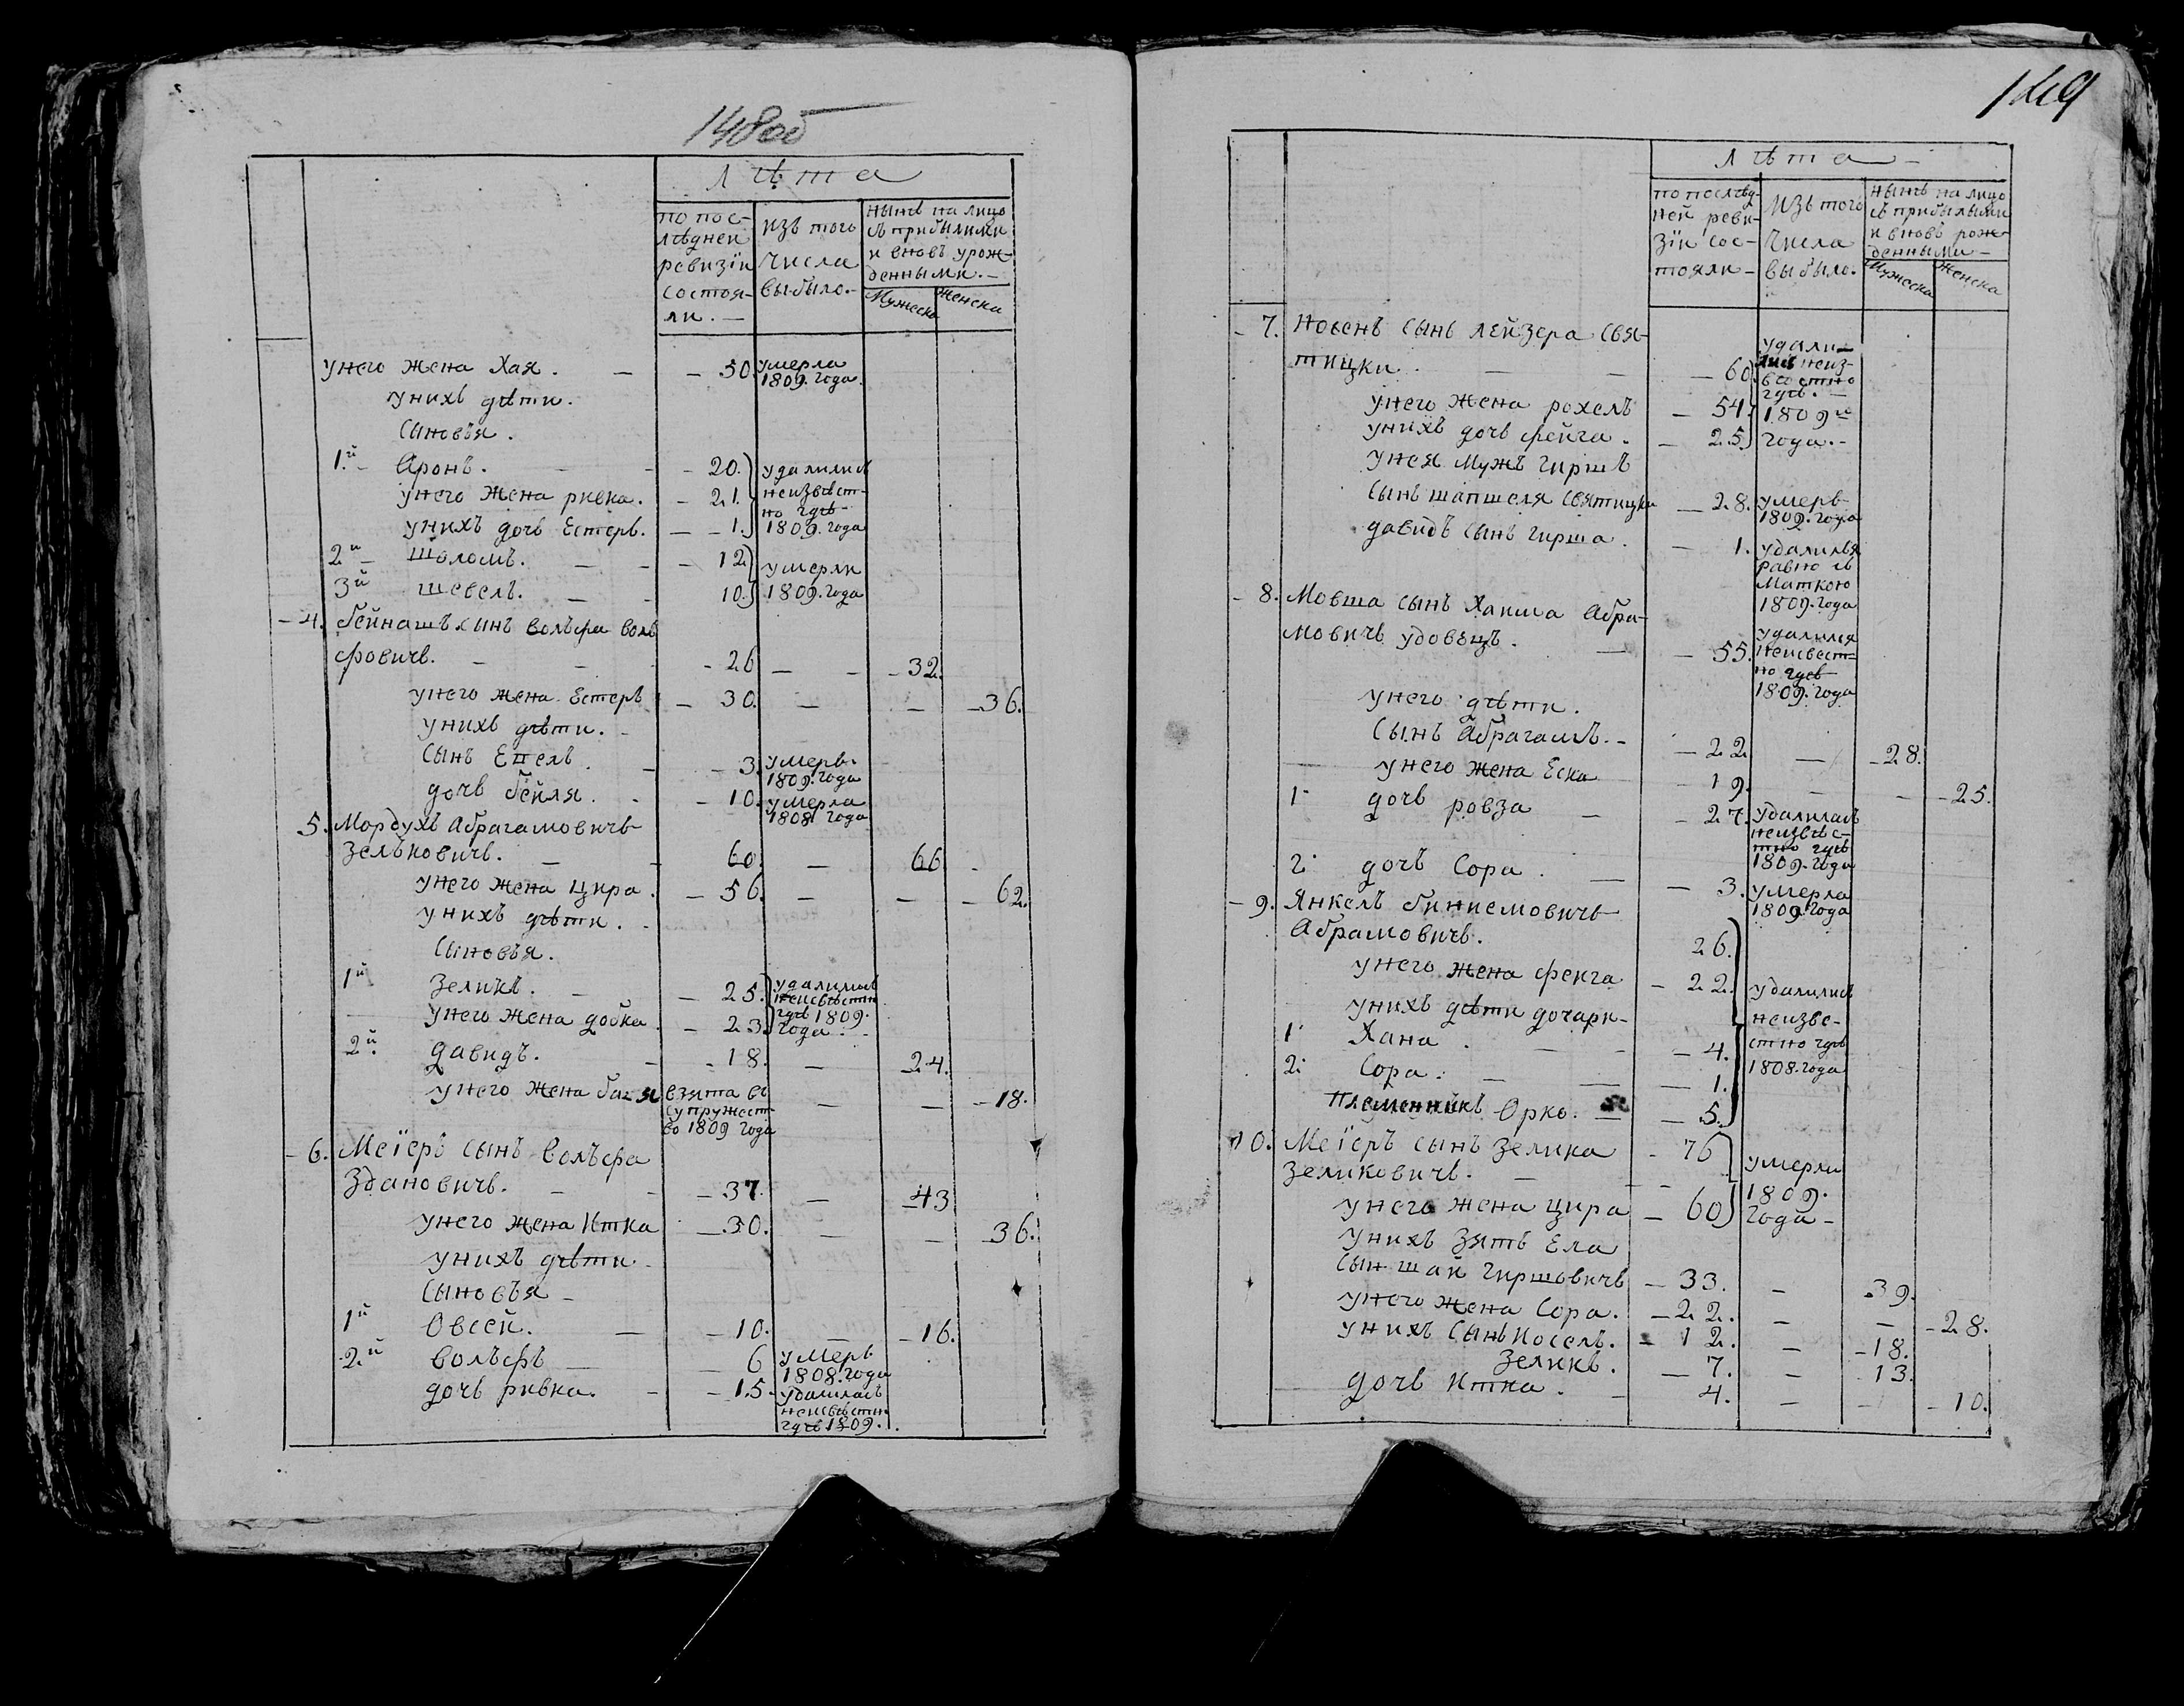 148об
Лѣта
по пос-
лѣдней
ревизіи
состоя-
ли. —
изъ того
числа
выбыло. —
нынѣ на лицо
съ прибылими
и вновъ урож-
денными. —
Мужеска
Женска
у него жена Хая. — — 50. умерла
1809. года.
у нихъ дѣти.
Сыновья.
1.й — Аронъ. — — 20. удалились
у него жена ривка. — 21. неизвѣст-
но гдѣ —
у нихъ дочь Естеръ. — — 1. 1809. года
2й — Шоломъ. — — 12 умерли
3й Шевелъ. — — 10. 1809. года
— 4. бейнашъ синъ волъфа воль
фовичъ. — — — 26 — — — 32.
у него жена Естеръ — 30. — — — 36.
у нихъ дѣти. —
Сынъ Епель. — — 3. умеръ.
1809. года
дочь бейля. — — 10. умерла
1808 года
5. Мордухъ Абрагамовичъ
Зелъковичъ. — — 60. — 66. —
у него жена Цира. — 56. — — — 62.
у нихъ дѣти. —
Сыновъя.
1й Зеликъ. — — 25. удалились
неисвѣстно
гдѣ 1809.
у него жена добка. — 23. года. —
2.й Давидъ. — — 18. — 24.
у него жена бася взята въ
супружест-
во 1809 года — — — 18.
— 6. Меіеръ сынъ волъфа
Здановичъ. — — — 37. — — 43
у него жена Итка — 30. — — 36.
у нихъ дѣти —
Сыновъя —
1й Овсей. — — 10. — — 16.
2.й волъфъ — — 6 умеръ
1808. года
дочь ривка. — — 15 — удалилась
неисвѣстно
гдѣ 1809.
149
Лѣта —
по послѣд-
ней реви-
зіи сос-
тояли —
Изъ того
числа
выбыло.
нынѣ на лицо
съ прибылыми
и вновъ рож-
денными —
Мужеска
Женска
— 7. Носенъ сынъ лейзера Свя-
тицки. — — — 60. удали-
лись неиз-
вѣстно
гдѣ. —
у него жена рохелъ — 54. 1809го
у нихъ дочь фейга. — 25. года. —
у нея мужъ гиршъ
сынъ шапшеля святицки — 28. умеръ
1809. года
давидъ сынъ гирша. — 1. удалился
равно съ
Маткою
1809. года
— 8. Мовша сынъ Хаима Абра-
мовичъ удовецъ. — — 55. удалился
неисвест-
но гдѣ
1809. года
у него дѣти.
Сынъ Абрагамъ. — — 22. — — 28.
у него жена Еска — 19. — — — 25.
1. дочь ровза — — 27. удалилась
неизвѣс-
тно гдѣ
1809. года
2. дочь Сора. — — 3. умерла
1809. года
— 9. Янкелъ биниемовичъ
Абрамовичъ. 26.
у него жена фейга — 22. удалились
у нихъ дѣти дочари — неизве-
1. Хана. — — — 4. стно гдѣ
2. Сора. — — — 1. 1808. года
Племенникъ Орко. — — 5.
10. Меіеръ сынъ Зелика — 76
Зеликовичъ. — — умерли
1809.
у него жена Цира — 60 года —
у нихъ зять Ела
сын шаи гиршовичъ — 33. — 39.
у него жена Сора. — 22. — — — 28.
у нихъ сынъ Иосель. — 12. — — 18.
Зеликъ. — 7. — 13.
дочь Итка. — 4. — — — 10.